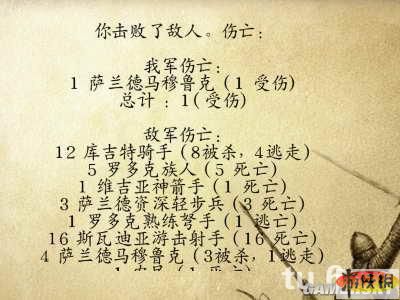 你击败了敌人。伤亡：
我军伤亡：
1 萨兰德马穆鲁克（1 受伤）
总计：1（受伤）
敌军伤亡：
12 库吉特骑手（8被杀，4逃走）
5 罗多克族人（5 死亡）
1 维吉亚神箭手（1 死亡）
3 萨兰德资深轻步兵（3 死亡）
1 罗多克熟练弩手（1 逃亡）
16 斯瓦迪亚游击射手（16 死亡）
4 萨兰德马穆鲁克（3被杀，1逃走）
游侠网